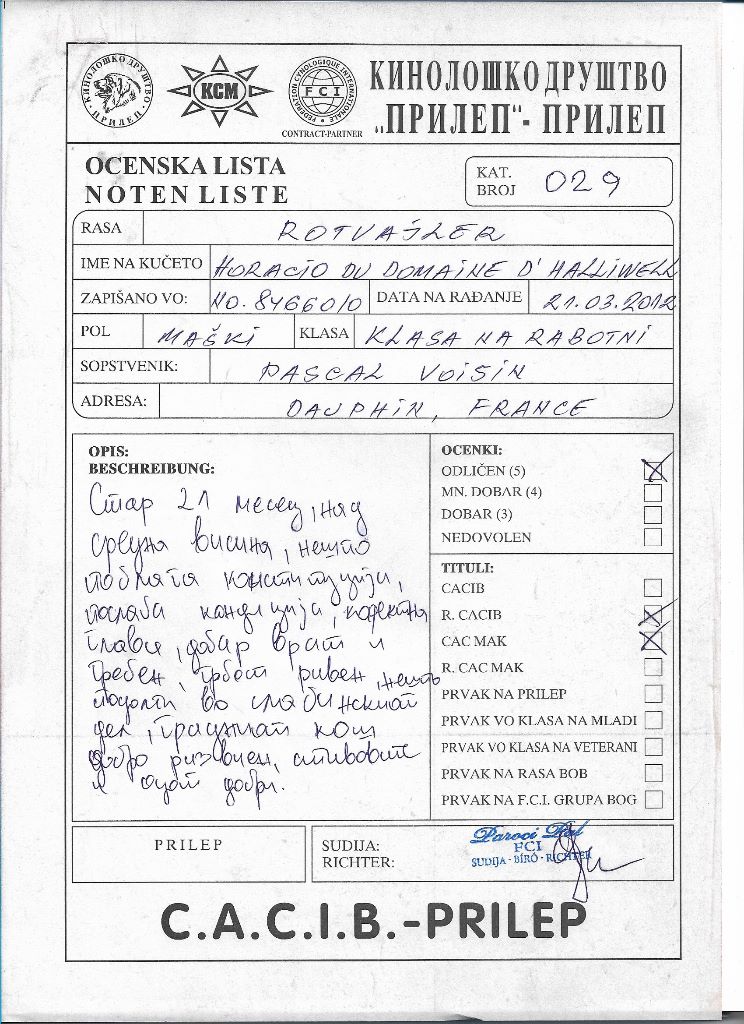 КИНОЛОШКО ДРУШТВО
ПРИЛЕП
KCM
FEDERATION CYNOLOGIQUE INTERNATIONALE
FCI
CONTRACT-PARTNER
КИНОЛОШКО ДРУШТВО
„ПРИЛЕП“- ПРИЛЕП
OCENSKA LISTA
NOTEN LISTE
KAT. BROJ 029
RASA ROTVAJLER
IME NA KUČETO HORACIO DU DOMAINE D'HALLIWELL
ZAPIŠANO VO: NO. 84660/0 DATA NA RAĐANJE 21.03.2012
POL MAŠKI KLASA KLASA NA RABOTNI
SOPSTVENIK: PASCAL VOISIN
ADRESA: DAUPHIN, FRANCE
OPIS:
BESCHREIBUNG:
Стар 21 месец, над
средна висина, нешто
поблага конституција,
послаба кондиција, коректна
глава, добар врат и
гребен, грбот рамен, нешто
подолги во слабинскиот
дел, градниот кош
добро развиен, ставовите
и одот добри.
OCENKI:
ODLIČEN (5)
MN. DOBAR (4)
DOBAR (3)
NEDOVOLEN
TITULI:
CACIB
R. CACIB
CAC MAK
R. CAC MAK
PRVAK NA PRILEP
PRVAK VO KLASA NA MLADI
PRVAK VO KLASA NA VETERANI
PRVAK NA RASA BOB
PRVAK NA F.C.I. GRUPA BOG
PRILEP
SUDIJA:
RICHTER:
Paroci Pal
FCI
SUDIJA - BÍRÓ - RICHTER
C.A.C.I.B.-PRILEP